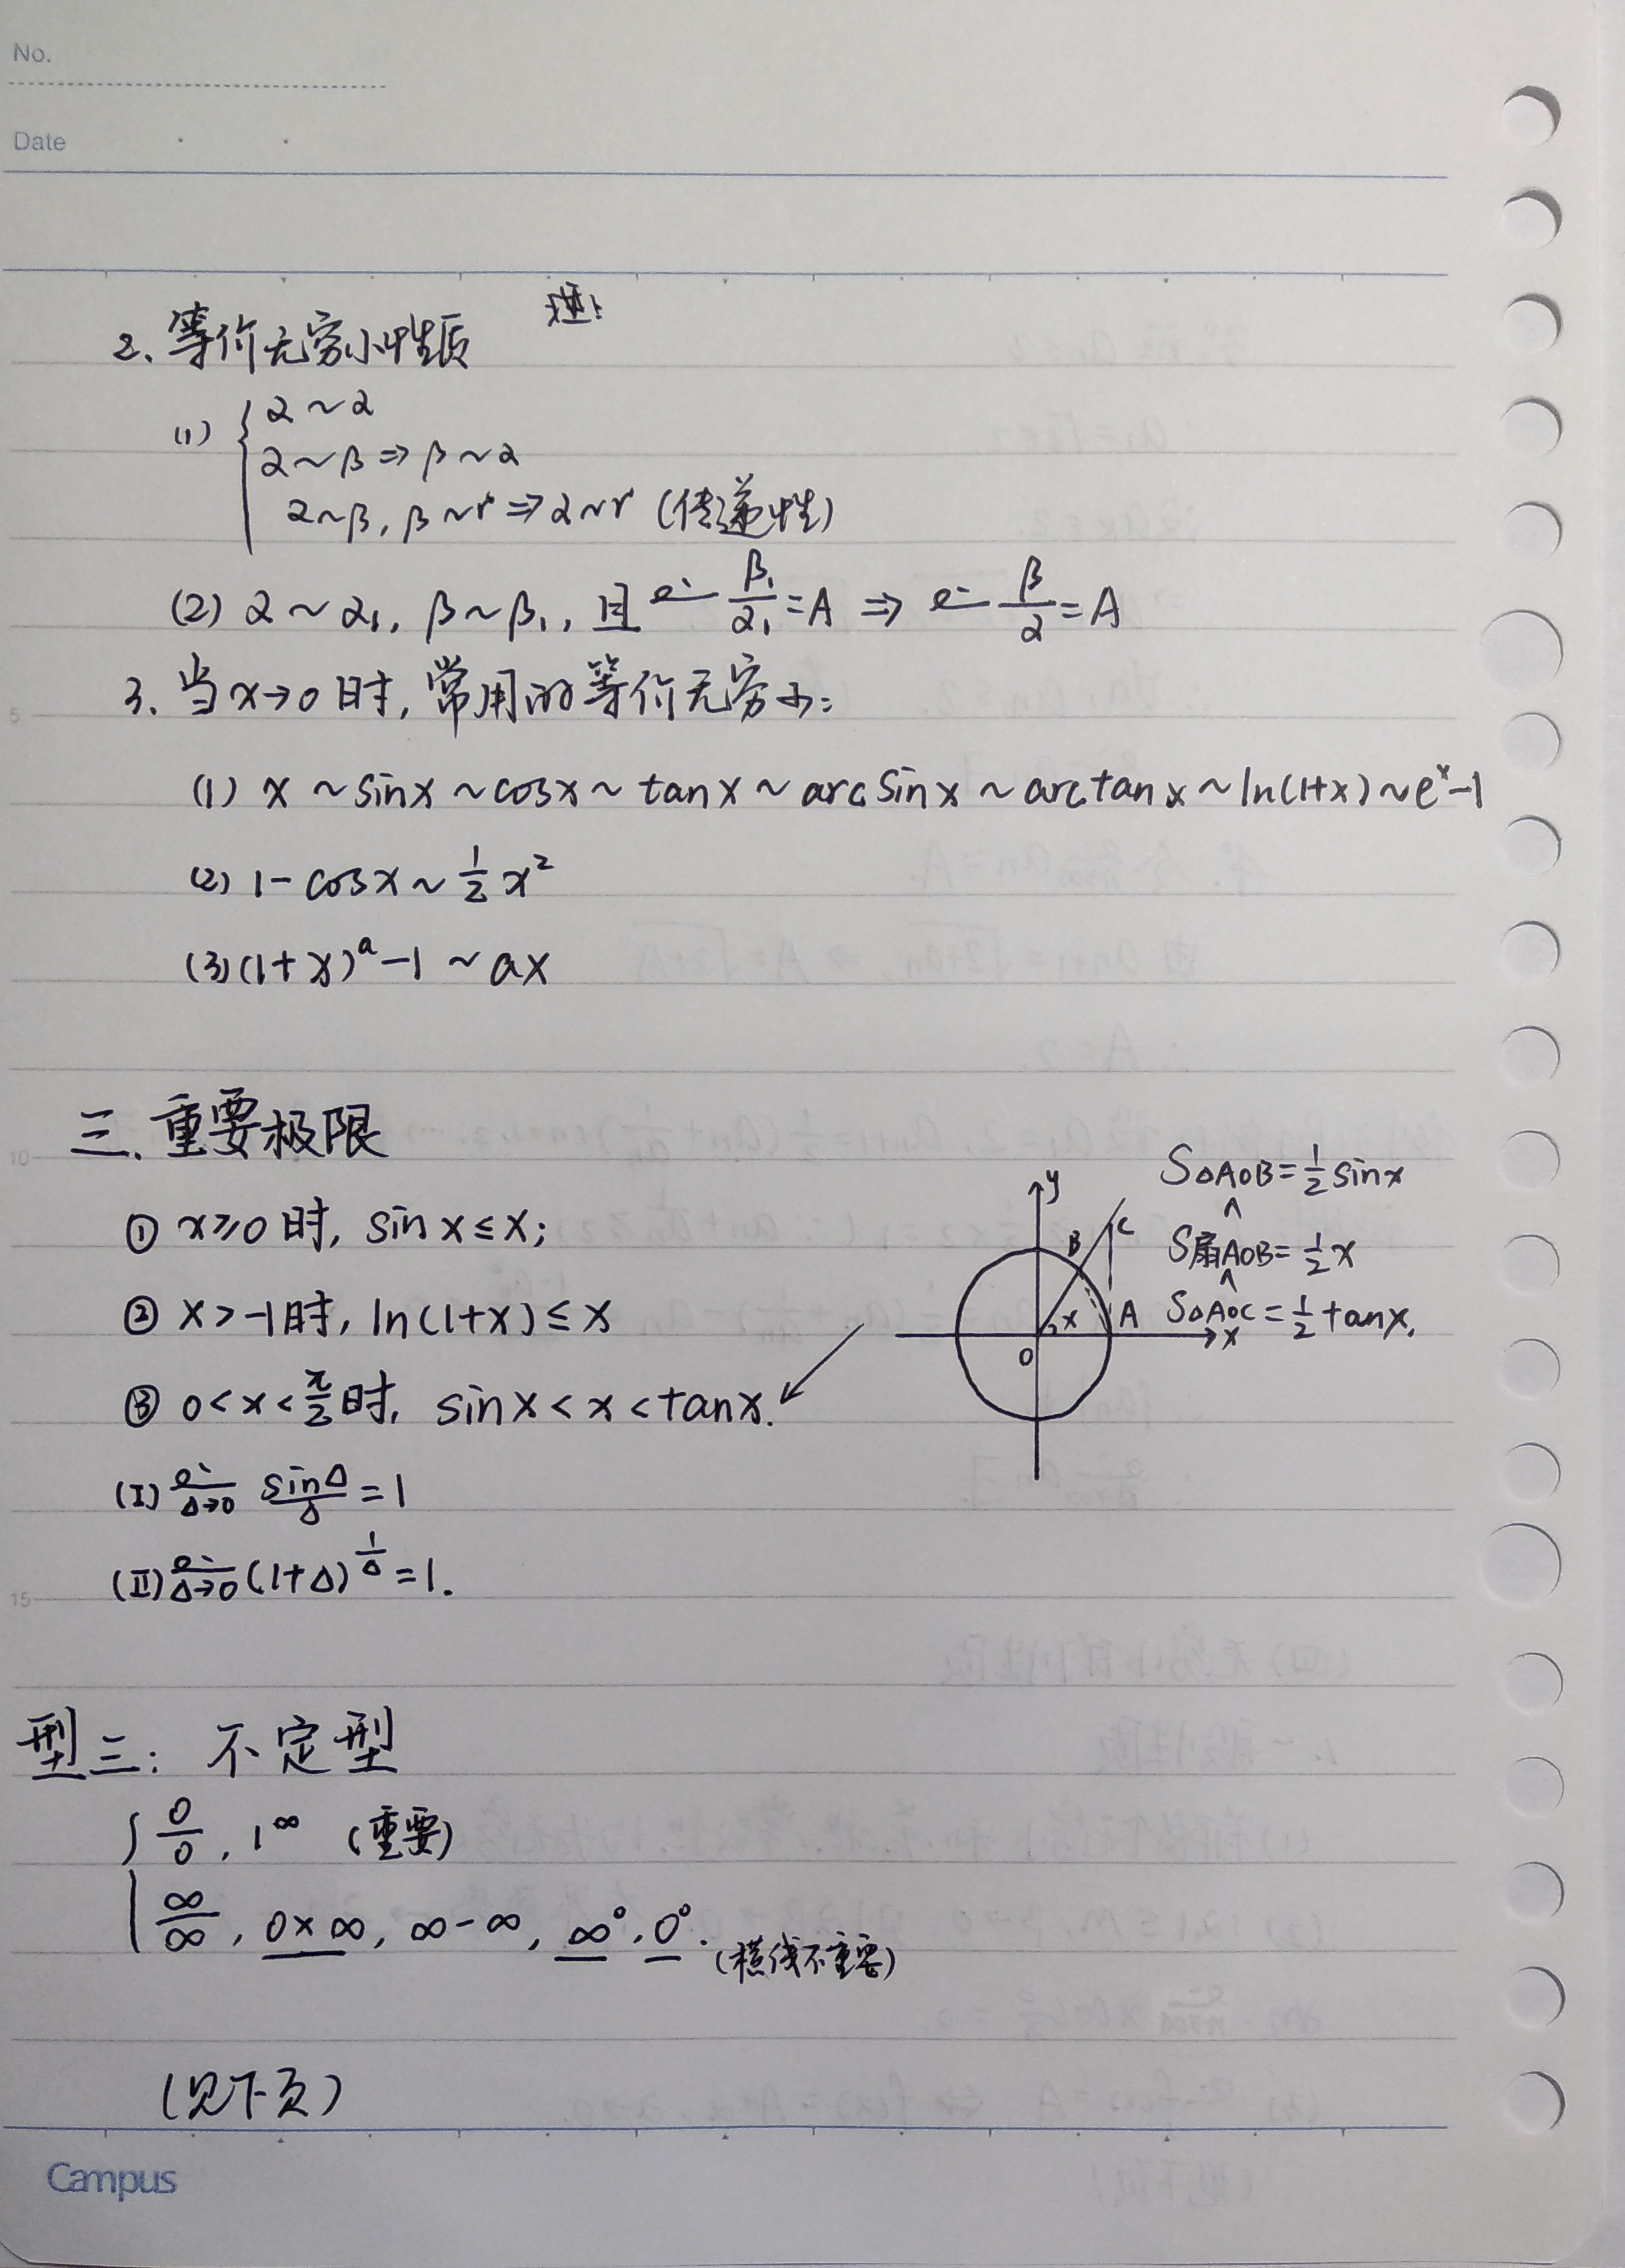 No.
Date
2、等价无穷小性质
(1) { α ~ α
α ~ β ⇒ β ~ α
α ~ β, β ~ r ⇒ α ~ r (传递性)
(2) α ~ α₁, β ~ β₁, 且 lim β₁/α₁ = A ⇒ lim β/α = A
3、当 x→0 时, 常用的等价无穷小:
(1) x ~ sinx ~ cosx ~ tanx ~ arcsinx ~ arctanx ~ ln(1+x) ~ eˣ-1
(2) 1-cosx ~ 1/2 x²
(3) (1+x)ᵃ-1 ~ ax
三、重要极限
① x≥0 时, sinx ≤ x;
② x>-1时, ln(1+x) ≤ x
③ 0<x<π/2时, sinx < x < tanx.
y
B
C
x
A
O
x
S△AOB = 1/2 sinx
∧
S扇AOB = 1/2 x
∧
S△AOC = 1/2 tanx.
(I) lim Δ→0 sinΔ/Δ = 1
(II) lim Δ→0 (1+Δ)^(1/Δ) = 1.
型三: 不定型
{ 0/0, 1^∞ (重要)
∞/∞, 0×∞, ∞-∞, ∞⁰, 0⁰. (横线不重要)
(见下页)
5
10
15
Campus